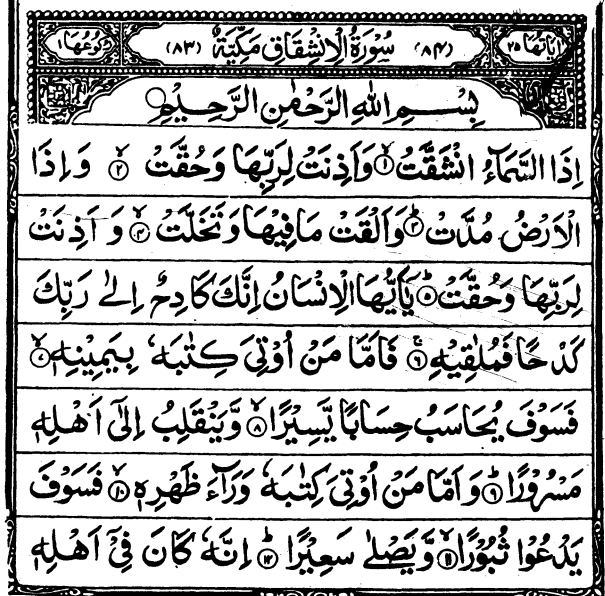 اٰيَاتُهَا ٢٥ (٨٤) سُوْرَةُ الْاِنْشِقَاقِ مَكِّيَّةٌ (٨٣) رُكُوْعُهَا ١
بِسْمِ اللهِ الرَّحْمٰنِ الرَّحِيْمِ
اِذَا السَّمَآءُ انْشَقَّتْ ۙ﴿١﴾ وَاَذِنَتْ لِرَبِّهَا وَحُقَّتْ ۙ﴿٢﴾ وَاِذَا
الْاَرْضُ مُدَّتْ ۙ﴿٣﴾ وَاَلْقَتْ مَا فِيْهَا وَتَخَلَّتْ ۙ﴿٤﴾ وَاَذِنَتْ
لِرَبِّهَا وَحُقَّتْ ؕ﴿٥﴾ يٰۤاَيُّهَا الْاِنْسَانُ اِنَّكَ كَادِحٌ اِلٰى رَبِّكَ
كَدْحًا فَمُلٰقِيْهِ ۚ﴿٦﴾ فَاَمَّا مَنْ اُوْتِيَ كِتٰبَهٗ بِيَمِيْنِهٖ ۙ﴿٧﴾
فَسَوْفَ يُحَاسَبُ حِسَابًا يَّسِيْرًا ۙ﴿٨﴾ وَّيَنْقَلِبُ اِلٰۤى اَهْلِهٖ
مَسْرُوْرًا ؕ﴿٩﴾ وَاَمَّا مَنْ اُوْتِيَ كِتٰبَهٗ وَرَآءَ ظَهْرِهٖ ۙ﴿١٠﴾ فَسَوْفَ
يَدْعُوْا ثُبُوْرًا ۙ﴿١١﴾ وَّيَصْلٰى سَعِيْرًا ؕ﴿١٢﴾ اِنَّهٗ كَانَ فِيْۤ اَهْلِهٖ